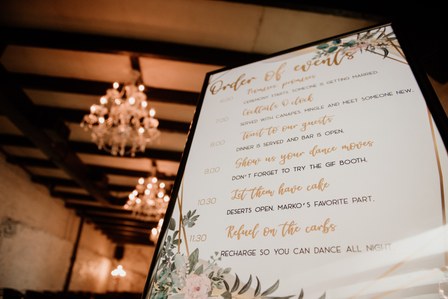 Order of events
Promise promises
CEREMONY STARTS. SOMEONE IS GETTING MARRIED.
Cocktails O'clock
SERVED WITH CANAPES. MINGLE AND MEET SOMEONE NEW.
Toast to our guests
DINNER IS SERVED AND BAR IS OPEN.
19:00
Show us your dance moves
DON'T FORGET TO TRY THE GIF BOOTH.
10:20
Let them have cake
DESSERTS OPEN, MARKO'S FAVORITE PART.
11:30
Refuel on the carbs
RECHARGE SO YOU CAN DANCE ALL NIGHT